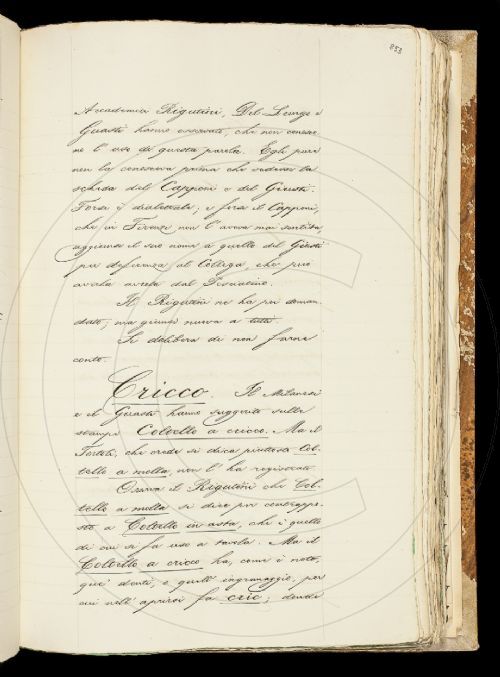 853
Accademici Rigutini, Del Lungo e
Guasti hanno osservato, che non conosce-
no l'uso di questa parola. Egli pure
non la conosceva prima che vedesse la
scheda del Capponi e del Giusti.
Forse è dialettale; e forse il Capponi,
che in Firenze non l'aveva mai sentita
aggiunse il suo nome a quello del Giusti
per deferenza al Collega, che può
averla avuta dal Pesciatino.
Il Rigutini ne ha poi doman-
dato; ma giunse nuova a tutti.
Si delibera di non farne
conto.
Cricco. Il Milanesi
e il Guasti hanno suggerito sulle
stampe Coltello a cricco. Ma il
Tortoli, che crede si dica piuttosto Col-
tello a molla, non l'ha registrato.
Osserva il Rigutini che Col-
tello a molla si dice per contrappo-
sto a Coltello in asta, che è quello
di cui si fa uso a tavola. Ma il
Coltello a cricco ha, come è noto,
que' denti, e quell' ingranaggio, per
cui nell' aprirsi fa cric; donde